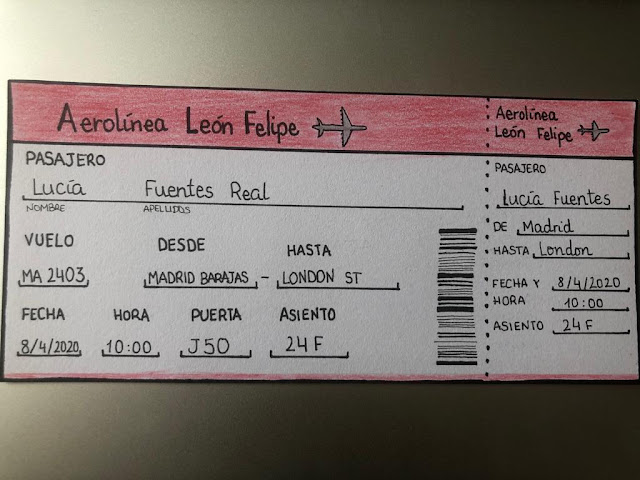 Aerolínea León Felipe
PASAJERO
Lucía Fuentes Real
NOMBRE APELLIDOS
VUELO DESDE HASTA
MA 2403 MADRID BARAJAS - LONDON ST
FECHA HORA PUERTA ASIENTO
8/4/2020 10:00 J50 24F
Aerolínea
León Felipe
PASAJERO
Lucía Fuentes
DE Madrid
HASTA London
FECHA Y 8/4/2020
HORA 10:00
ASIENTO 24F